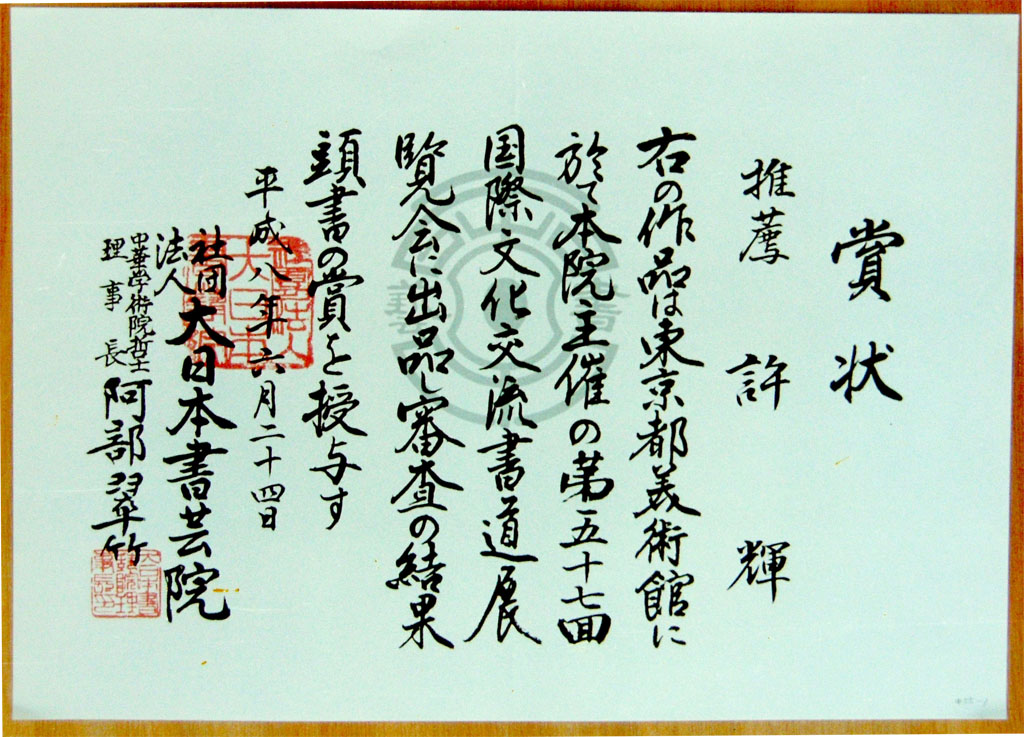 賞状
推薦 許輝
右の作品は東京都美術館に
於て本院主催の第五十七回
国際文化交流書道展
覧会に出品し審査の結果
頭書の賞を授与す
平成八年六月二十四日
社団法人 大日本書芸院
中華学術院哲士
理事長 阿部翠竹